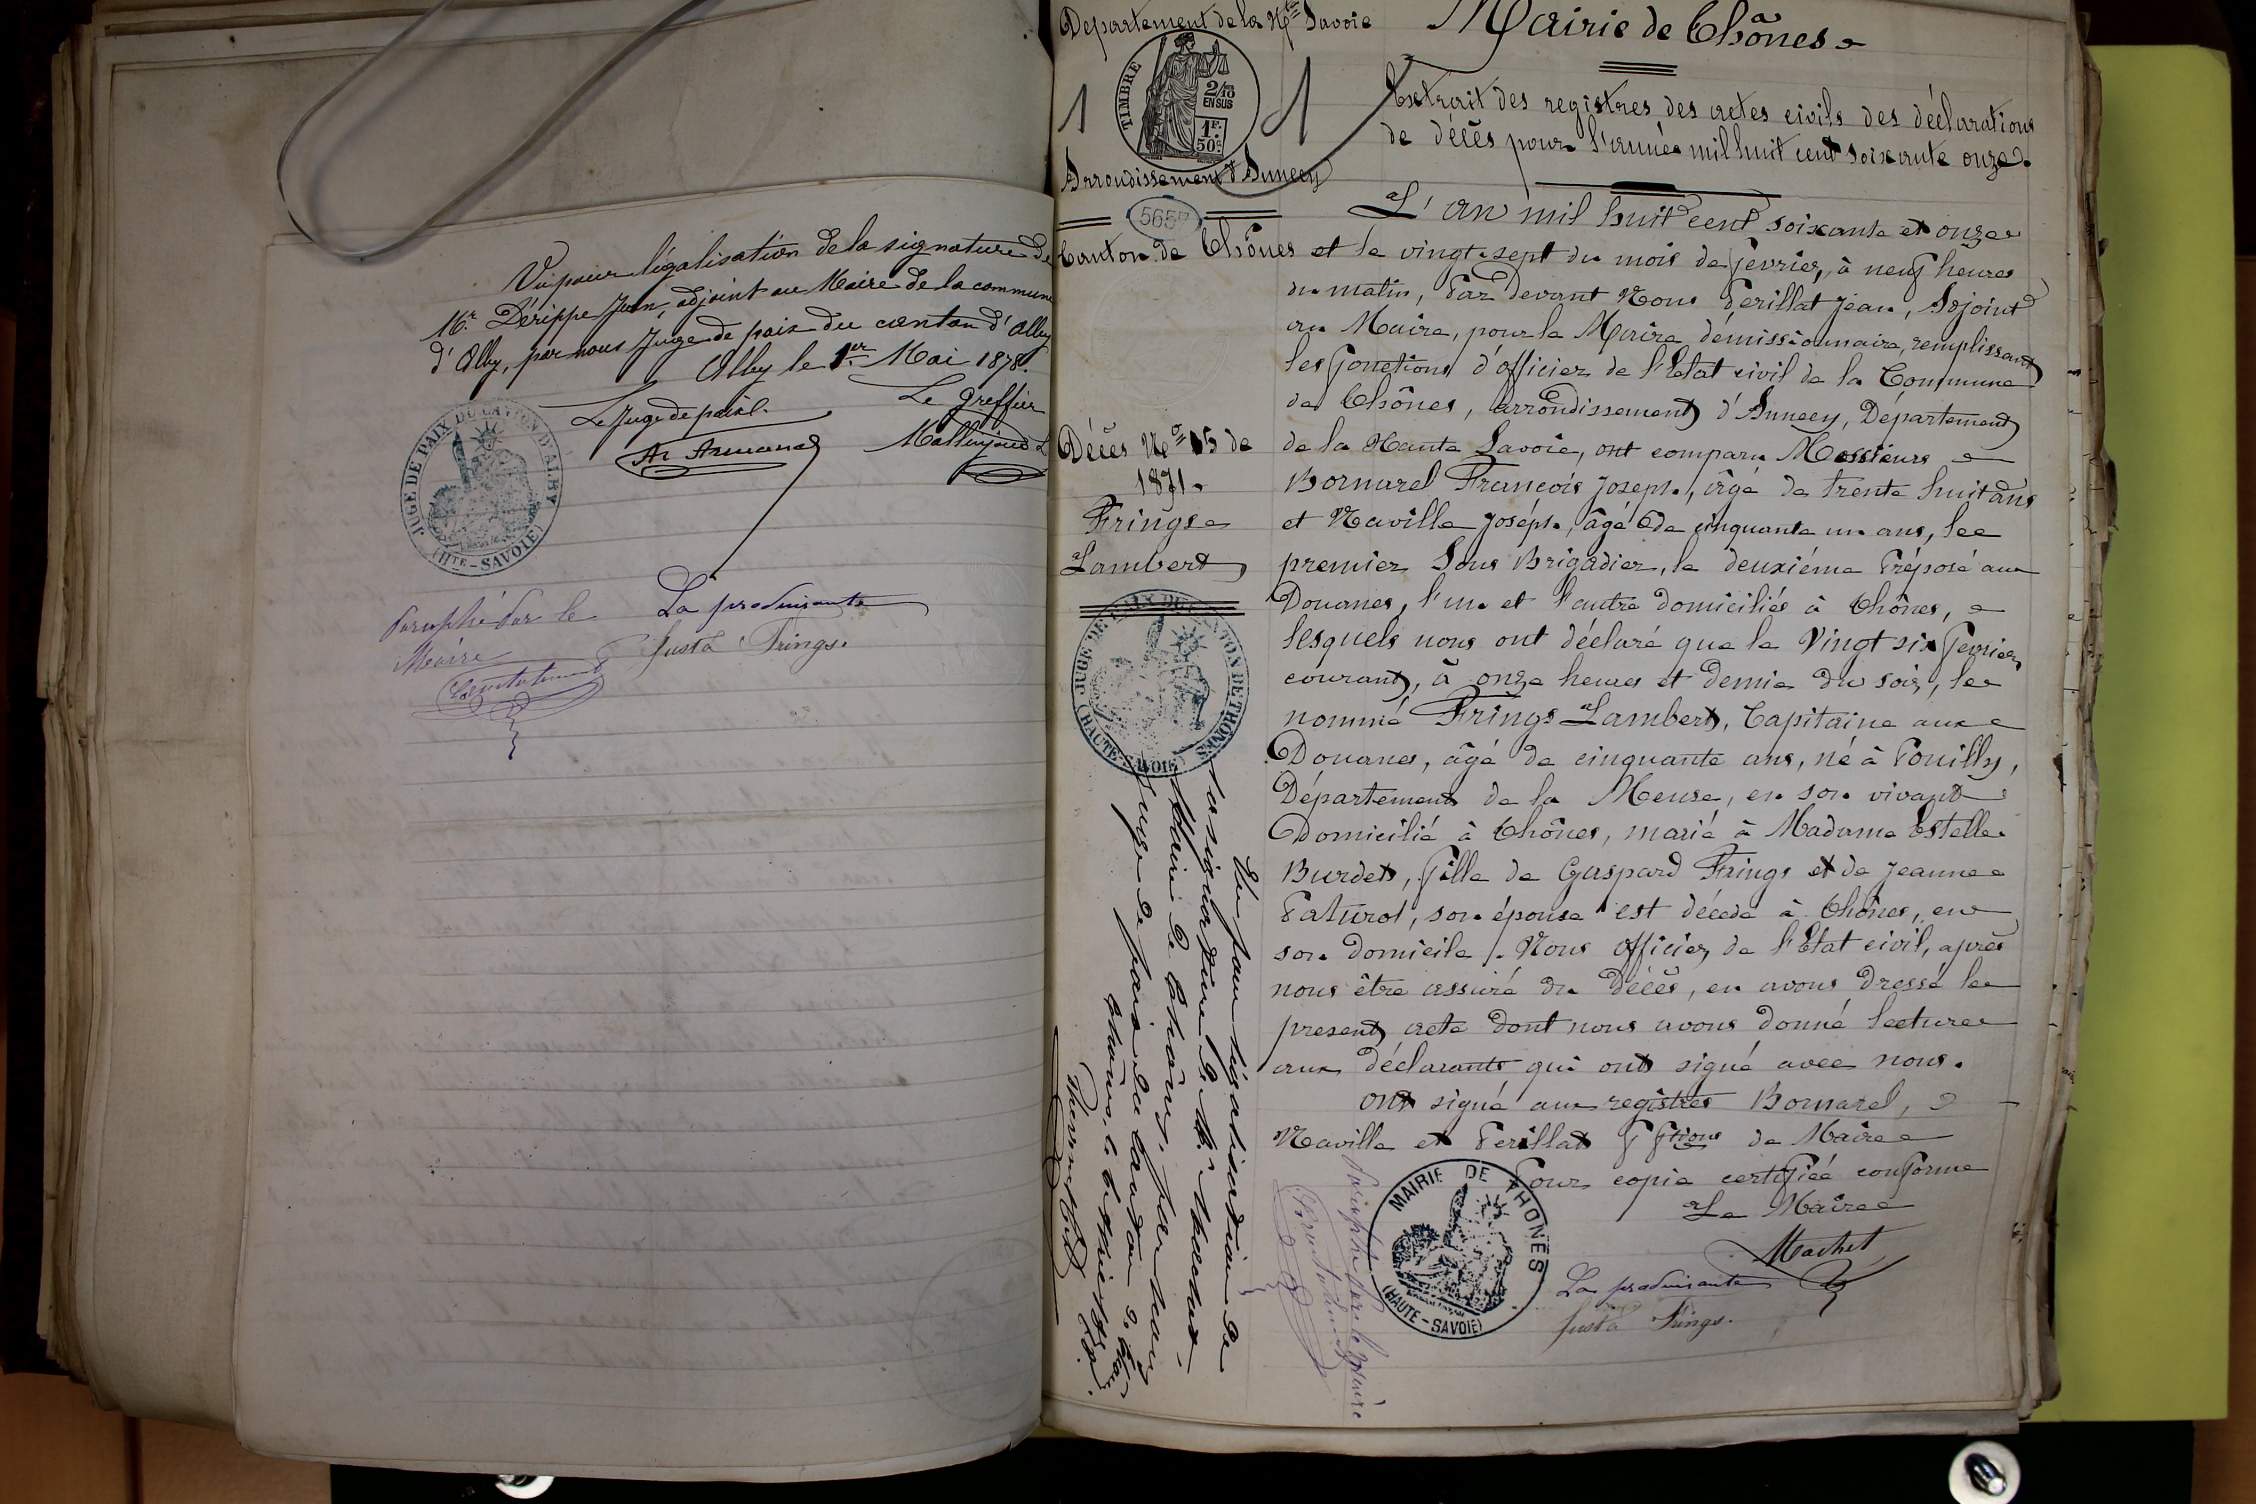 Vu pour légalisation de la signature de
Mr. Dérippe Jean, adjoint au Maire de la commune
d'Alby, par nous Juge de paix du canton d'Alby
Alby le 1er Mai 1878.
Le Juge de paix. Le Greffier
JUGE DE PAIX DU CANTON D'ALBY
(HTE-SAVOIE)
Paraphé par le
Maire
La produisante
Justa Frings.
Département de la Hte Savoie
TIMBRE
2/10
EN SUS
1F.
50c.
1 1
Arrondissement d'Annecy
565
Canton de Thônes
Décès No 15 de
1871.
Frings
Lambert
JUGE DE PAIX DU CANTON DE THONES
(HAUTE-SAVOIE)
Vu pour légalisation de
la signature de Mr Machet
Maire de Thônes, par nous
Juge de paix du Canton de Thônes
Mairie de Thônes
Extrait des registres des actes civils des déclarations
de décès pour l'année mil huit cent soixante onze.
L'an mil huit cent soixante et onze
et le vingt-sept du mois de février, à neuf heures
du matin, Par devant Nous Périllat Jean, Adjoint
au Maire, pour le Maire démissionnaire, remplissant
les fonctions d'officier de l'Etat civil de la Commune
de Thônes, arrondissement d'Annecy, Département
de la Haute Savoie, ont comparu Messieurs
Bornarel François Joseph, âgé de trente huit ans
et Naville Joseph, âgé de cinquante un ans, le
premier Sous Brigadier, le deuxième Préposé aux
Douanes, l'un et l'autre domiciliés à Thônes,
lesquels nous ont déclaré que le Vingt six février
courant, à onze heures et demie du soir, le
nommé Frings Lambert, Capitaine aux
Douanes, âgé de cinquante ans, né à Pouilly,
Département de la Meuse, en son vivant
domicilié à Thônes, marié à Madame Estelle
Burdet, fille de Gaspard Frings et de Jeanne
Paturot, son épouse est décédé à Thônes, en
son domicile. Nous Officier de l'Etat civil, après
nous être assuré du décès, en avons dressé le
present acte dont nous avons donné lecture
aux déclarants qui ont signé avec nous.
Ont signé aux registres Bornarel,
Naville et Perillat f ftions de Maire
Pour copie certifiée conforme
Le Maire
Machet
MAIRIE DE THONES
(HAUTE-SAVOIE)
La produisante
Justa Frings.
Paraphé par le Maire